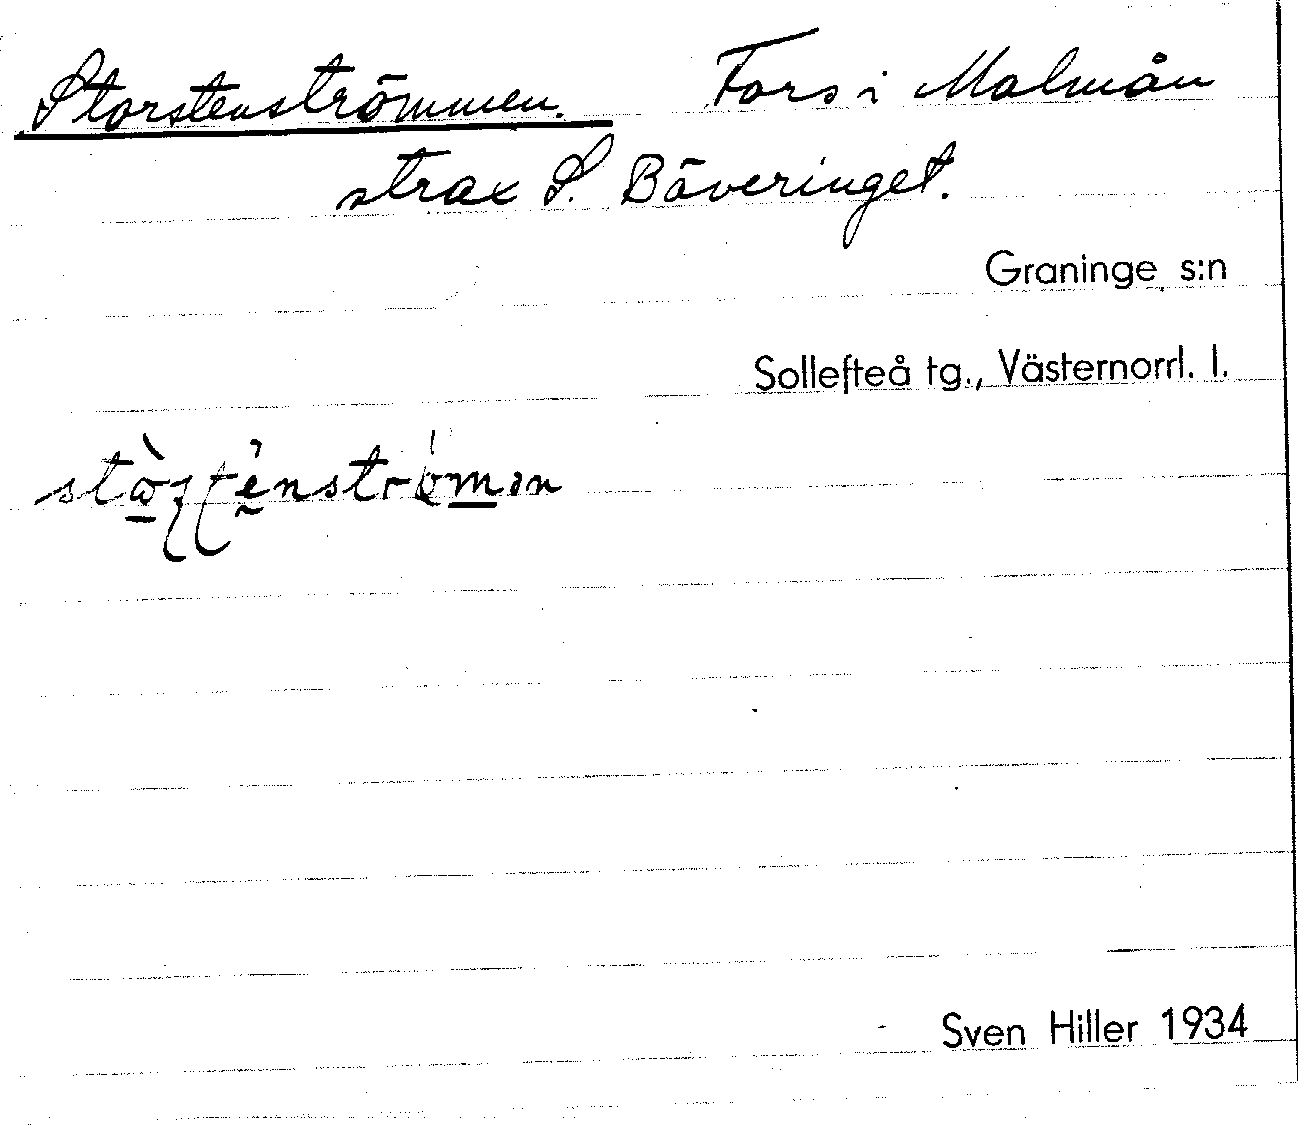 Storstensströmmen. Fors i Malmån
strax S. Bäveringet.
Graninge s:n
Sollefteå tg., Västernorrl. l.
Sven Hiller 1934